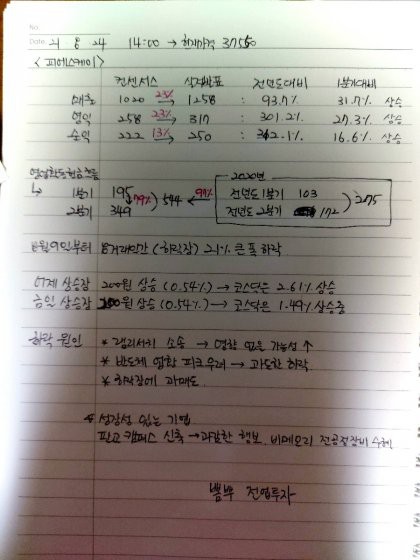 No.
Date. 21 8 24 14:00 → 현재가격 37550
<피에스케이>
컨센서스 실적발표 전년도대비 1분기대비
매출 1020 23% → 1258 : 93.7% 31.7% 상승
영익 258 23% → 317 : 301.2% 27.3% 상승
순익 222 13% → 250 : 342.1% 16.6% 상승
영업활동현금흐름
2020년
↳ 1분기 195 전년도 1분기 103
79% ) 544 ← 97% ) 275
2분기 349 전년도 2분기 172
8월9일부터 8거래일간 (하락장) 21% 큰 폭 하락
어제 상승장 200원 상승 (0.54%) → 코스닥은 2.61% 상승
금일 상승장 200원 상승 (0.54%) → 코스닥은 1.49% 상승중
하락 원인 * 램리서치 소송 → 영향 없을 가능성 ↑
* 반도체 업황 피크우려 → 과도한 하락
* 하락장에 과매도
* 성장성 있는 기업
판교 캠퍼스 신축 → 과감한 행보, 비메모리 전공정장비 수혜
뿜뿌 전업투자